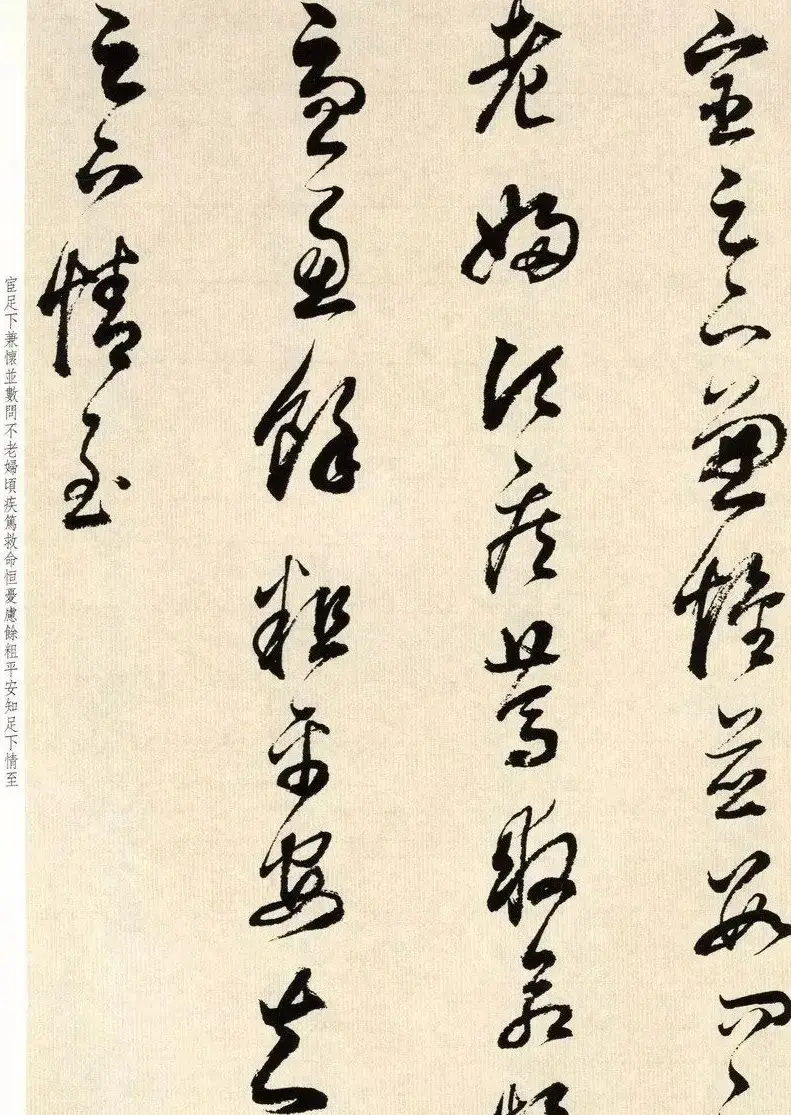 宦足下兼懷並數問不
老婦頃疾篤救命恒
憂慮餘粗平安知
足下情至
宦足下兼懷並數問不老婦頃疾篤救命恒憂慮餘粗平安知足下情至